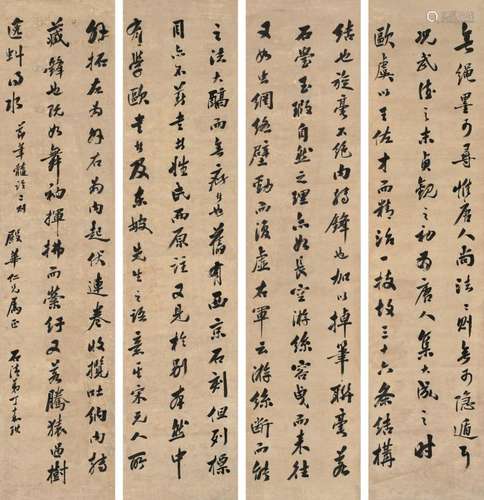 無繩墨可尋惟唐人尚法二則無可隱遁
況武德之末貞觀之初為唐人集大成之時
歐虞以王佐才而精治一技故三十六條結構
結也旋毫不絕內轉鋒也加以掉筆聯毫若
石瑩玉瑕自然之理亦如長空游絲容曳而來往
又如虫網絡壁勁而復虛右軍云游絲斷而能
之法大醇而無疵也舊有西京石刻但列標
目亦不著書者姓氏而原註又見於別本然中
有學歐書者及東坡先生之語意是宋元人所
外拓左為外右為內起伏連卷收攬吐納內轉
藏鋒也既如舞袖揮拂而縈紆又若騰猿過樹
逸虬得水 節筆髓論二則 殿華仁兄屬正 弟丁